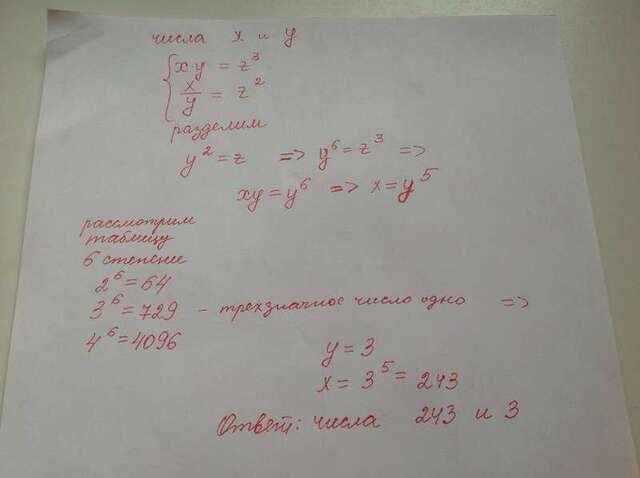 числа x и y
xy = z³
x/y = z²
разделим
y² = z => y⁶ = z³ =>
xy = y⁶ => x = y⁵
рассмотрим
таблицу
6 степене
2⁶ = 64
3⁶ = 729 - трехзначное число одно =>
4⁶ = 4096
y = 3
x = 3⁵ = 243
Ответ: числа 243 и 3